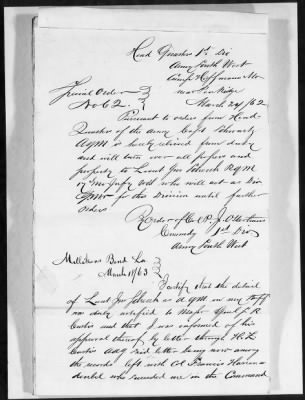 Head Quarters 1st Div
Army South West
Camp Hoffmann Mo
near Pea Ridge
Special Order
No 62.
March 24/62
Pursuant to orders from Head
Quarters of the Army Capt Schwarz
AQM is hereby relieved from duty
and will turn over all papers and
property to Lieut Jno Schenk RQM
17 Mo Infty Vols who will act as Div
QMr for this Division until further
orders
By order of Col P. J. Osterhaus
Commdg 1st Div
Army South West
Millikens Bend La
March 11/63
I certify that the detail
of Lieut Jno Schenk as AQM in my staff
was duly notified to Major Genl S. R.
Curtis and that I was informed of his
approval thereof by letter through H. Z.
Curtis AAG said letter being now among
the records left with Col Francis
who succeeded me in the Command